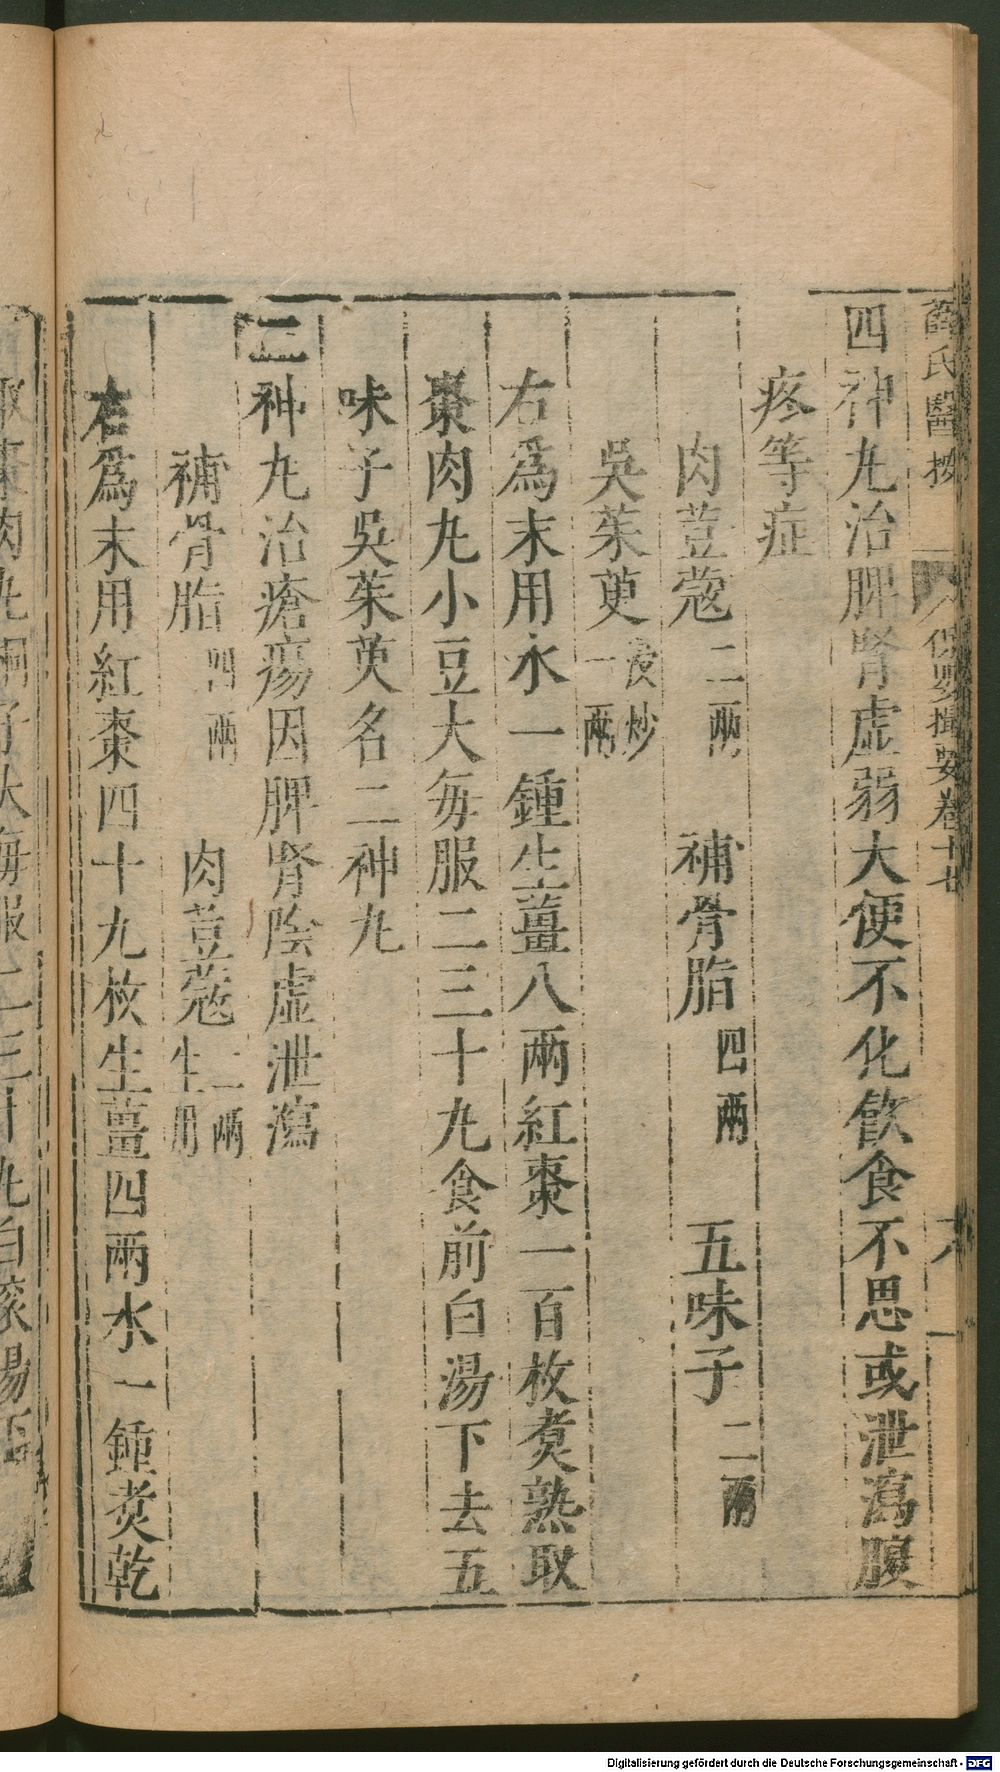 薛氏醫按 保嬰撮要卷十七 六
四神丸治脾腎虛弱大便不化飲食不思或泄瀉腹
疼等症
肉荳蔻二兩 補骨脂四兩 五味子二兩
吳茱萸浸炒一兩
右爲末用水一鍾生薑八兩紅棗一百枚煑熟取
棗肉丸小豆大每服二三十丸食前白湯下去五
味子吳茱萸名二神丸
二神丸治瘡瘍因脾腎陰虛泄瀉
補骨脂四兩 肉荳蔻二兩生用
右爲末用紅棗四十九枚生薑四兩水一鍾煑乾
取棗肉丸桐子大每服二三十丸白滾湯下
Digitalisierung gefördert durch die Deutsche Forschungsgemeinschaft - DFG